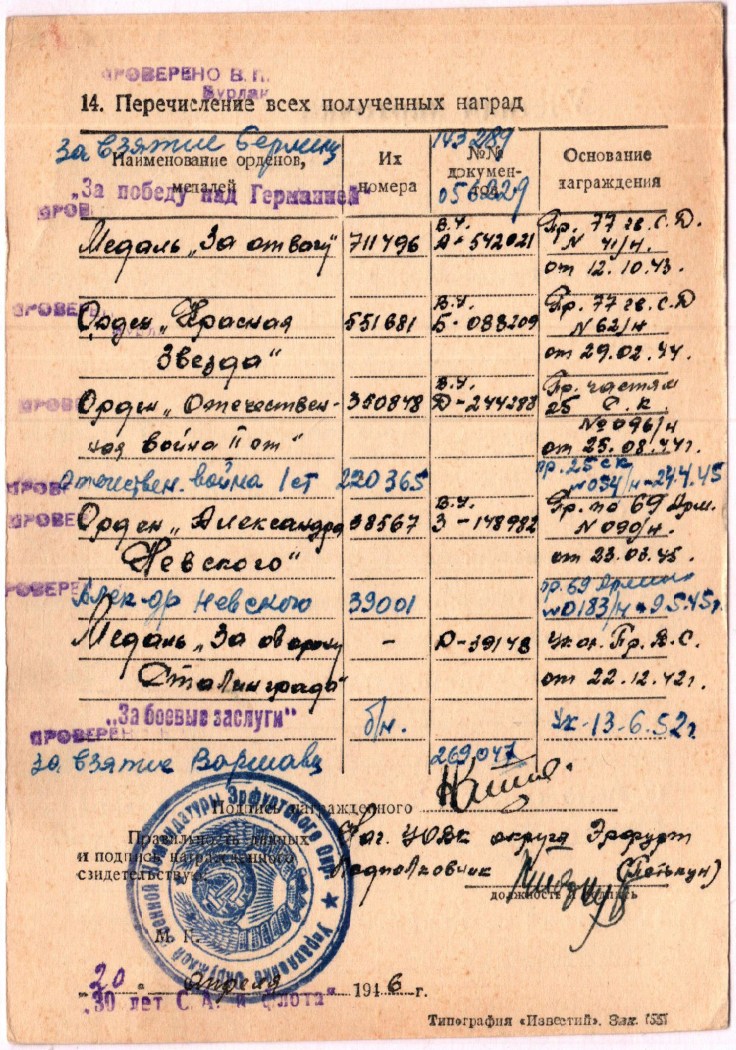 ПРОВЕРЕНО В. П.
Бурлак
14. Перечисление всех полученных наград
За взятие Берлина 143289
Наименование орденов, медалей
Их номера
№№ документов
Основание награждения
"За победу над Германией" 056229
ПРОВЕ
Медаль "За отвагу" 711496 В.У. А-542021 Пр. 77 гв. С.Д.
N 41/н.
от 12.10.43.
ПРОВЕ
Орден "Красная 551681 В.У. Б-088209 Пр. 77 гв. С.Д
Звезда" N 62/н
от 29.02.44.
ПРОВЕ
Орден "Отечествен- 350848 В.У. Д-244288 Пр. частям
25 С.К
ная война II ст" № 096/н
от 25.08.44г.
ПРОВ
Отечествен. война I ст 220365 пр. 25 ск
№ 034/н - 24.4.45
ПРОВЕ
Орден "Александра 38567 В.У. З-148982 Пр. по 69 Арм.
Невского" N 090/н.
от 23.03.45.
ПРОВЕРЕ
Алек-др Невского 39001 пр. 69 Армии
№ 0183/н 9.5.45г.
Медаль "За оборону - О-39148 Ук. от. Пр. В.С.
Сталинграда" от 22.12.42г.
"За боевые заслуги" б/н. Ук-13.6.52г
ПРОВЕРЕН
за взятие Варшавы 269047
Подпись награжденного
Правильность данных
и подпись награжденного
свидетельствую.
Нач. УОВК округа Эрфурт
Подполковник
должность и подпись
М. П.
Управление Окружной Военной Комендатуры Эрфуртского Окр.
"20" апреля 1946 г.
"30 лет С.А. и флота"
Типография «Известий». Зак. 155